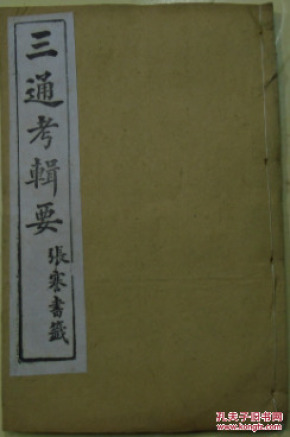 三通考輯要
張寒書籤
孔夫子旧书网
kongfz.com